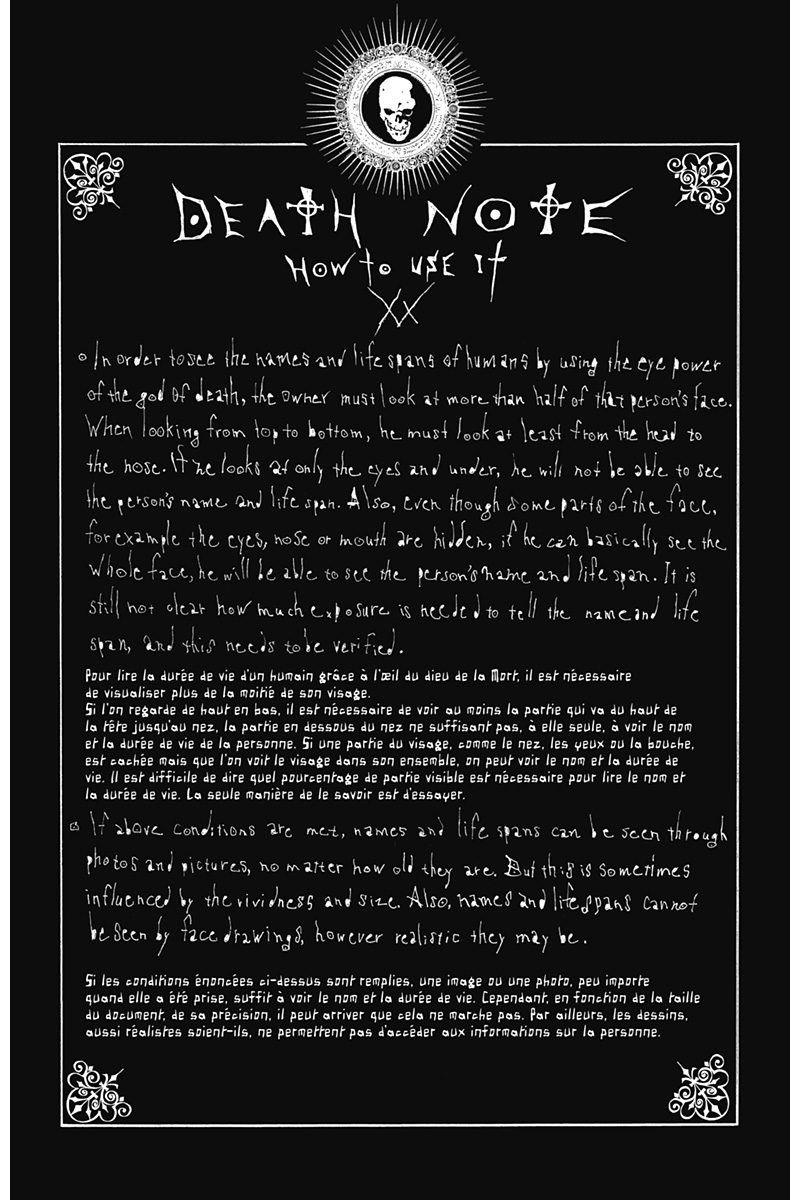 DEATH NOTE
HOW to USE IT
XX
In order to see the names and life spans of humans by using the eye power
of the god of death, the owner must look at more than half of that person's face.
When looking from top to bottom, he must look at least from the head to
the nose. If he looks at only the eyes and under, he will not be able to see
the person's name and life span. Also, even though some parts of the face,
for example the eyes, nose or mouth are hidden, if he can basically see the
whole face, he will be able to see the person's name and life span. It is
still not clear how much exposure is needed to tell the name and life
span, and this needs to be verified.
Pour lire la durée de vie d'un humain grâce à l'œil du dieu de la Mort, il est nécessaire
de visualiser plus de la moitié de son visage.
Si l'on regarde de haut en bas, il est nécessaire de voir au moins la partie qui va du haut de
la tête jusqu'au nez, la partie en dessous du nez ne suffisant pas, à elle seule, à voir le nom
et la durée de vie de la personne. Si une partie du visage, comme le nez, les yeux ou la bouche,
est cachée mais que l'on voit le visage dans son ensemble, on peut voir le nom et la durée de
vie. Il est difficile de dire quel pourcentage de partie visible est nécessaire pour lire le nom et
la durée de vie. La seule manière de le savoir est d'essayer.
If above conditions are met, names and life spans can be seen through
photos and pictures, no matter how old they are. But this is sometimes
influenced by the vividness and size. Also, names and life spans cannot
be seen by face drawings, however realistic they may be.
Si les conditions énoncées ci-dessus sont remplies, une image ou une photo, peu importe
quand elle a été prise, suffit à voir le nom et la durée de vie. Cependant, en fonction de la taille
du document, de sa précision, il peut arriver que cela ne marche pas. Par ailleurs, les dessins,
aussi réalistes soient-ils, ne permettent pas d'accéder aux informations sur la personne.